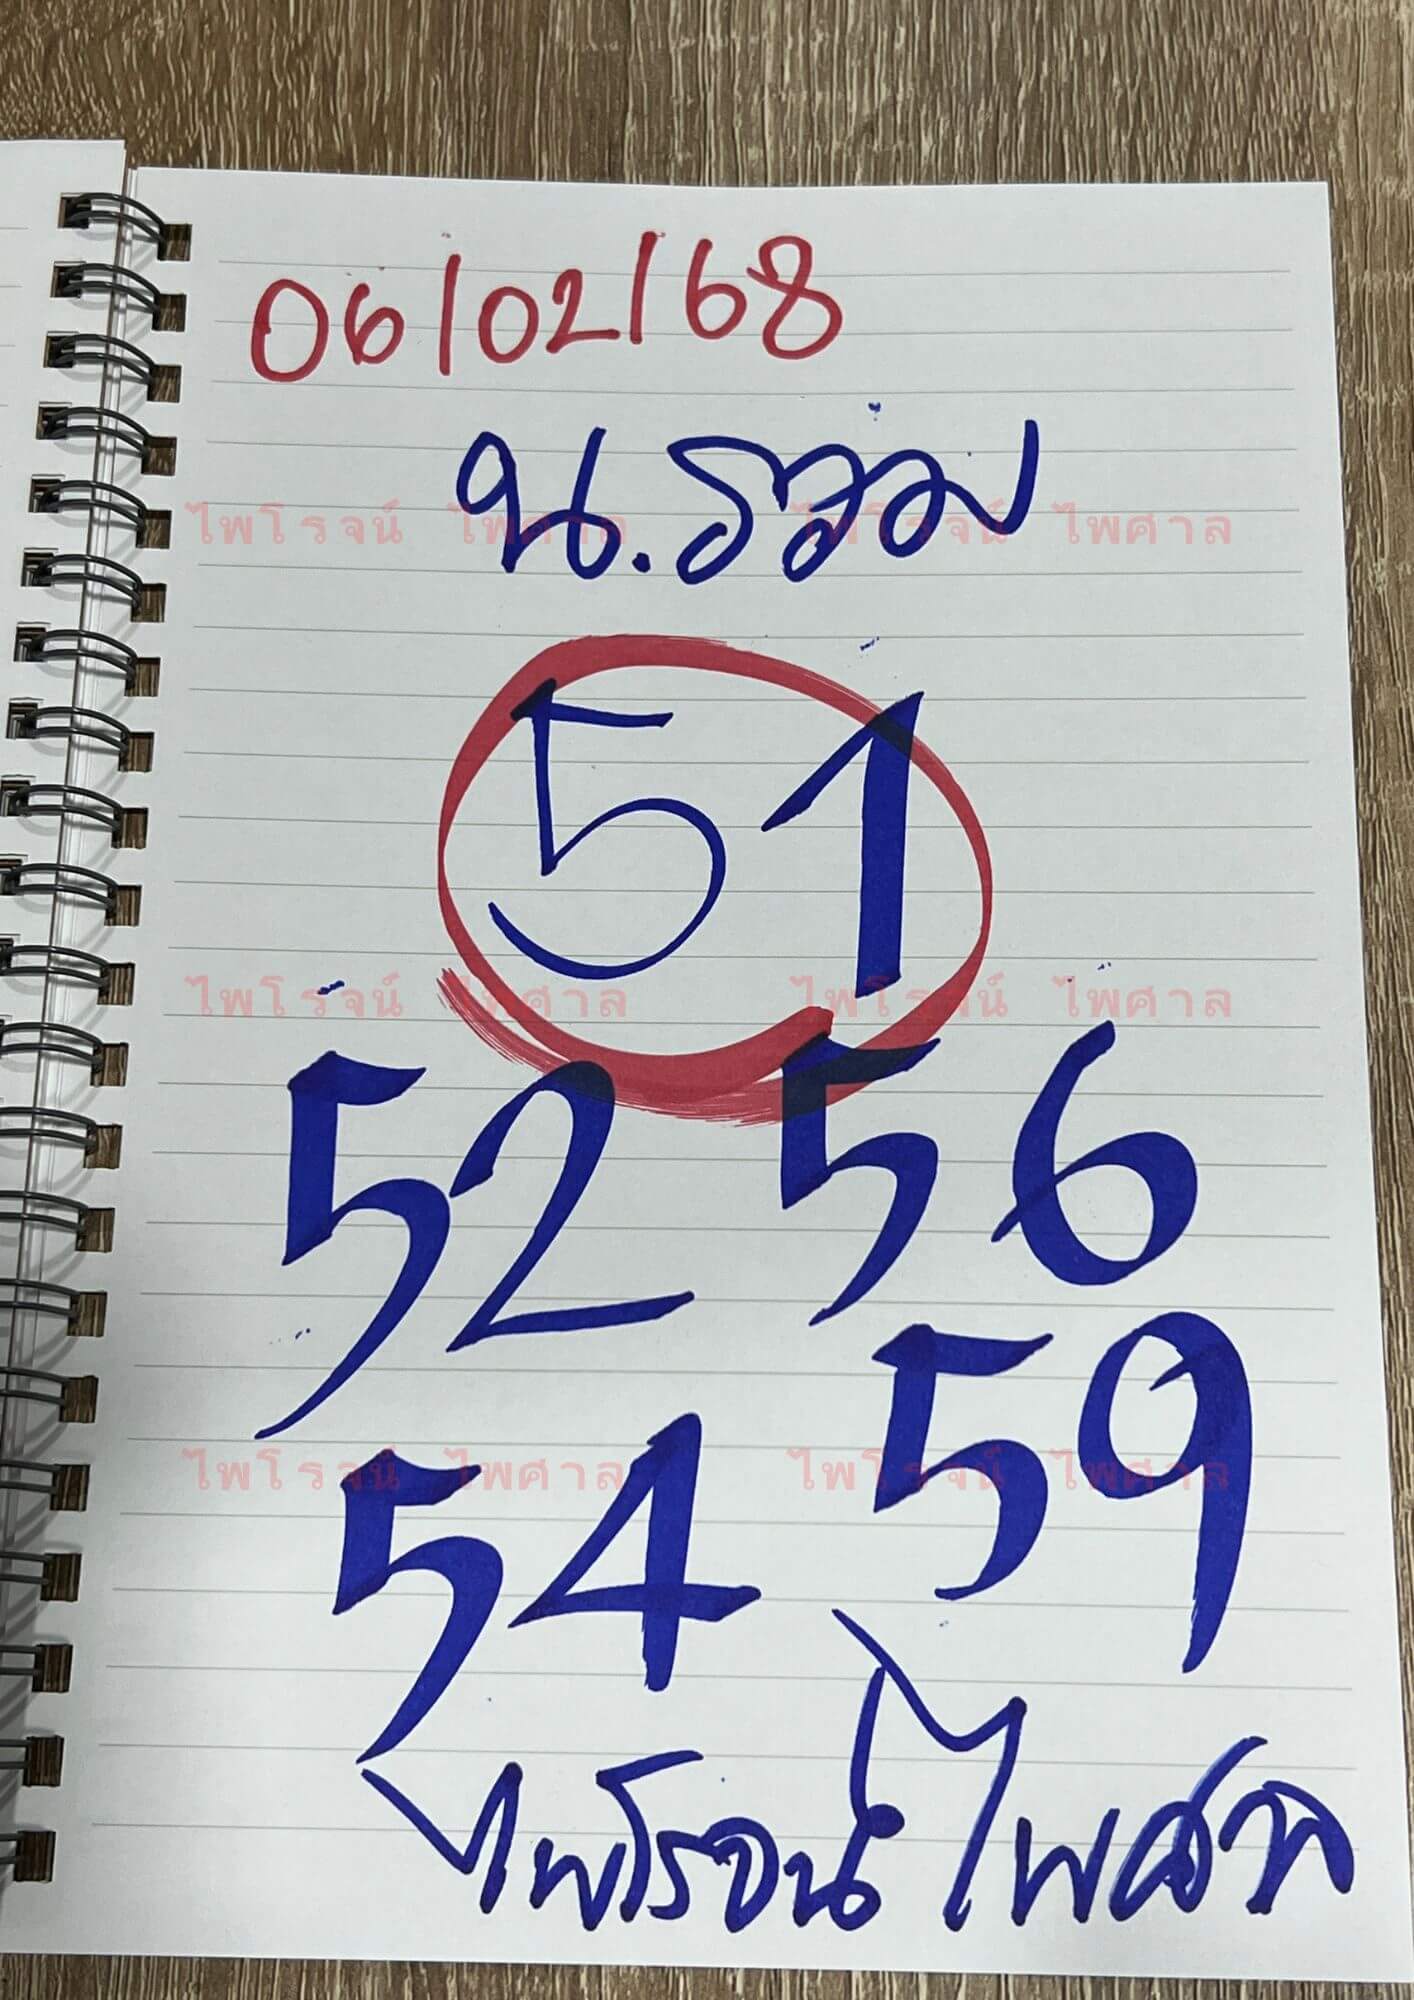 06/02/68
น.รวม
ไพโรจน์ ไพศาล ไพโรจน์ ไพศาล
51
ไพโรจน์ ไพศาล ไพโรจน์ ไพศาล
52 56
54 59
ไพโรจน์ ไพศาล ไพโรจน์ ไพศาล
ไพโรจน์ ไพศาล